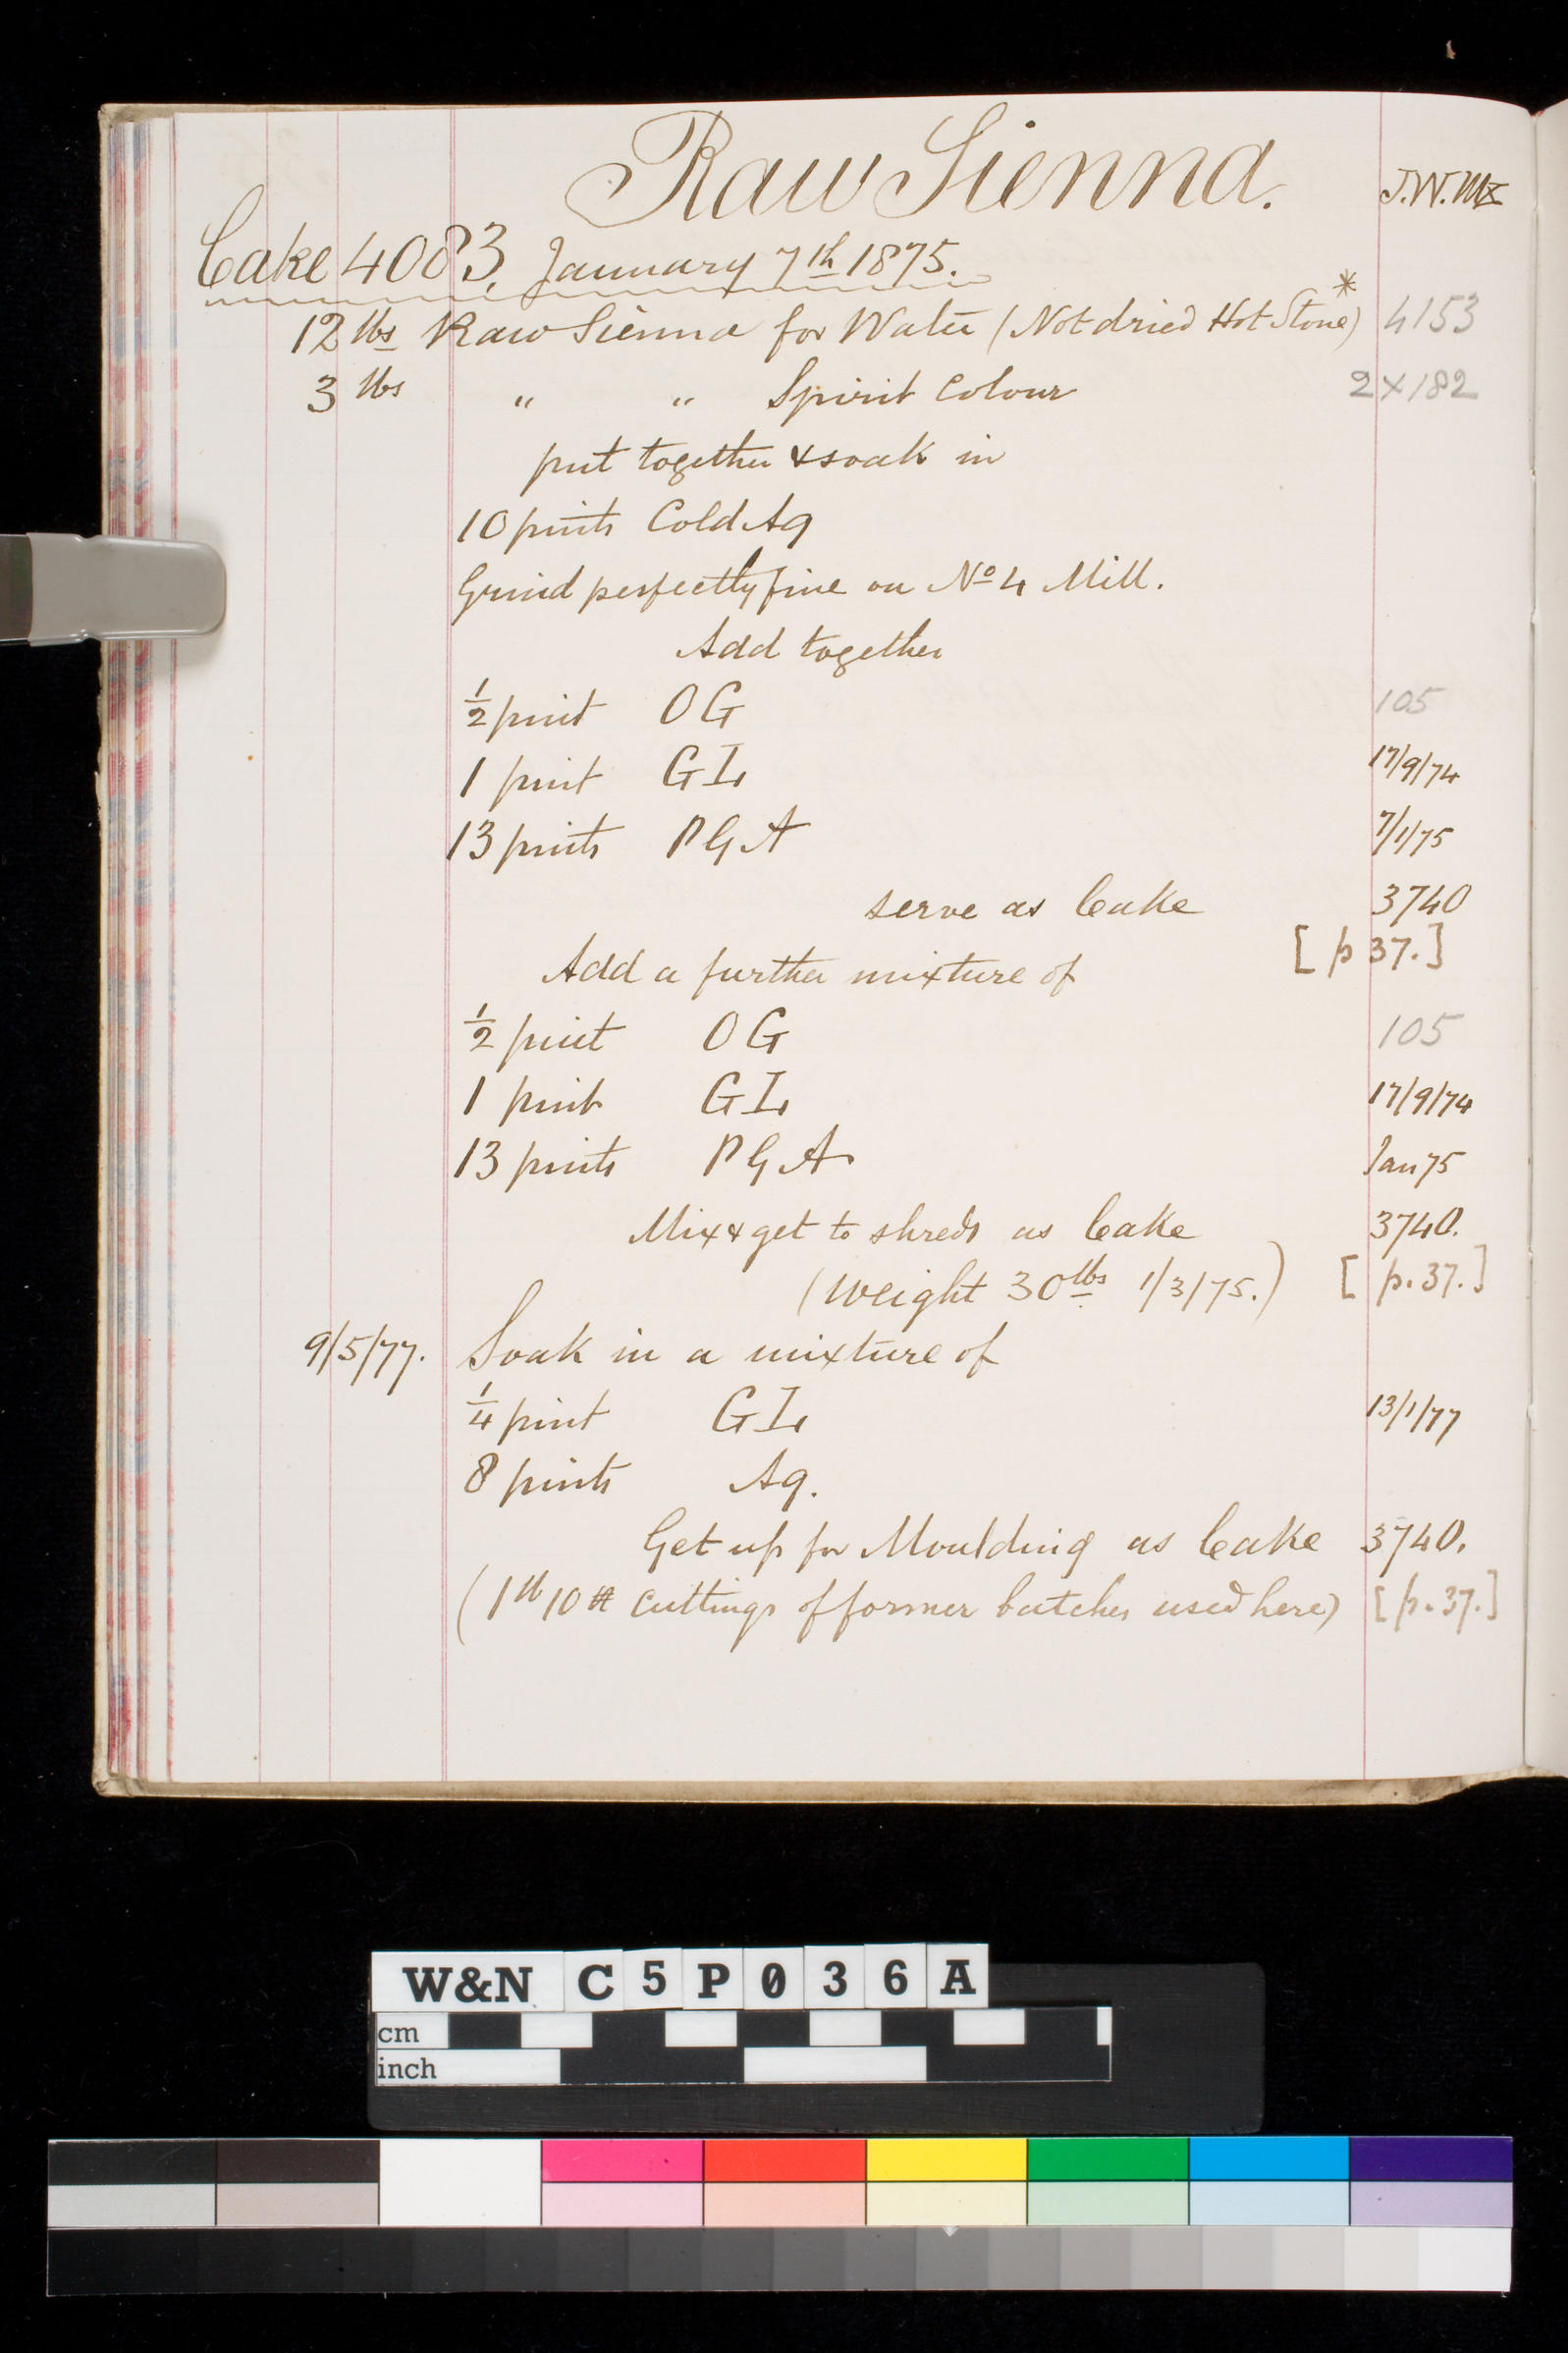 Raw Sienna. J.W.Mx
Cake 4083, January 7th 1875.
12 lbs Raw Sienna for Water (Not dried Hot Stone)* 4153
3 lbs " " Spirit Colour 2X182
put together & soak in
10 pints Cold Aq
Grind perfectly fine on No 4 Mill.
Add together
1/2 pint OG 105
1 pint GL 17/9/74
13 pints PGA 7/1/75
serve as Cake 3740
[p 37.]
Add a further mixture of
1/2 pint OG 105
1 pint GL 17/9/74
13 pints PGA Jan 75
Mix & get to shreds as Cake 3740.
(Weight 30 lbs 1/3/75.) [p.37.]
9/5/77. Soak in a mixture of
1/4 pint GL 13/1/77
8 pints Aq.
Get up for Moulding as Cake 3740.
(1 lb 10 cuttings of former batches used here) [p.37.]
W&N C5P036A
cm
inch